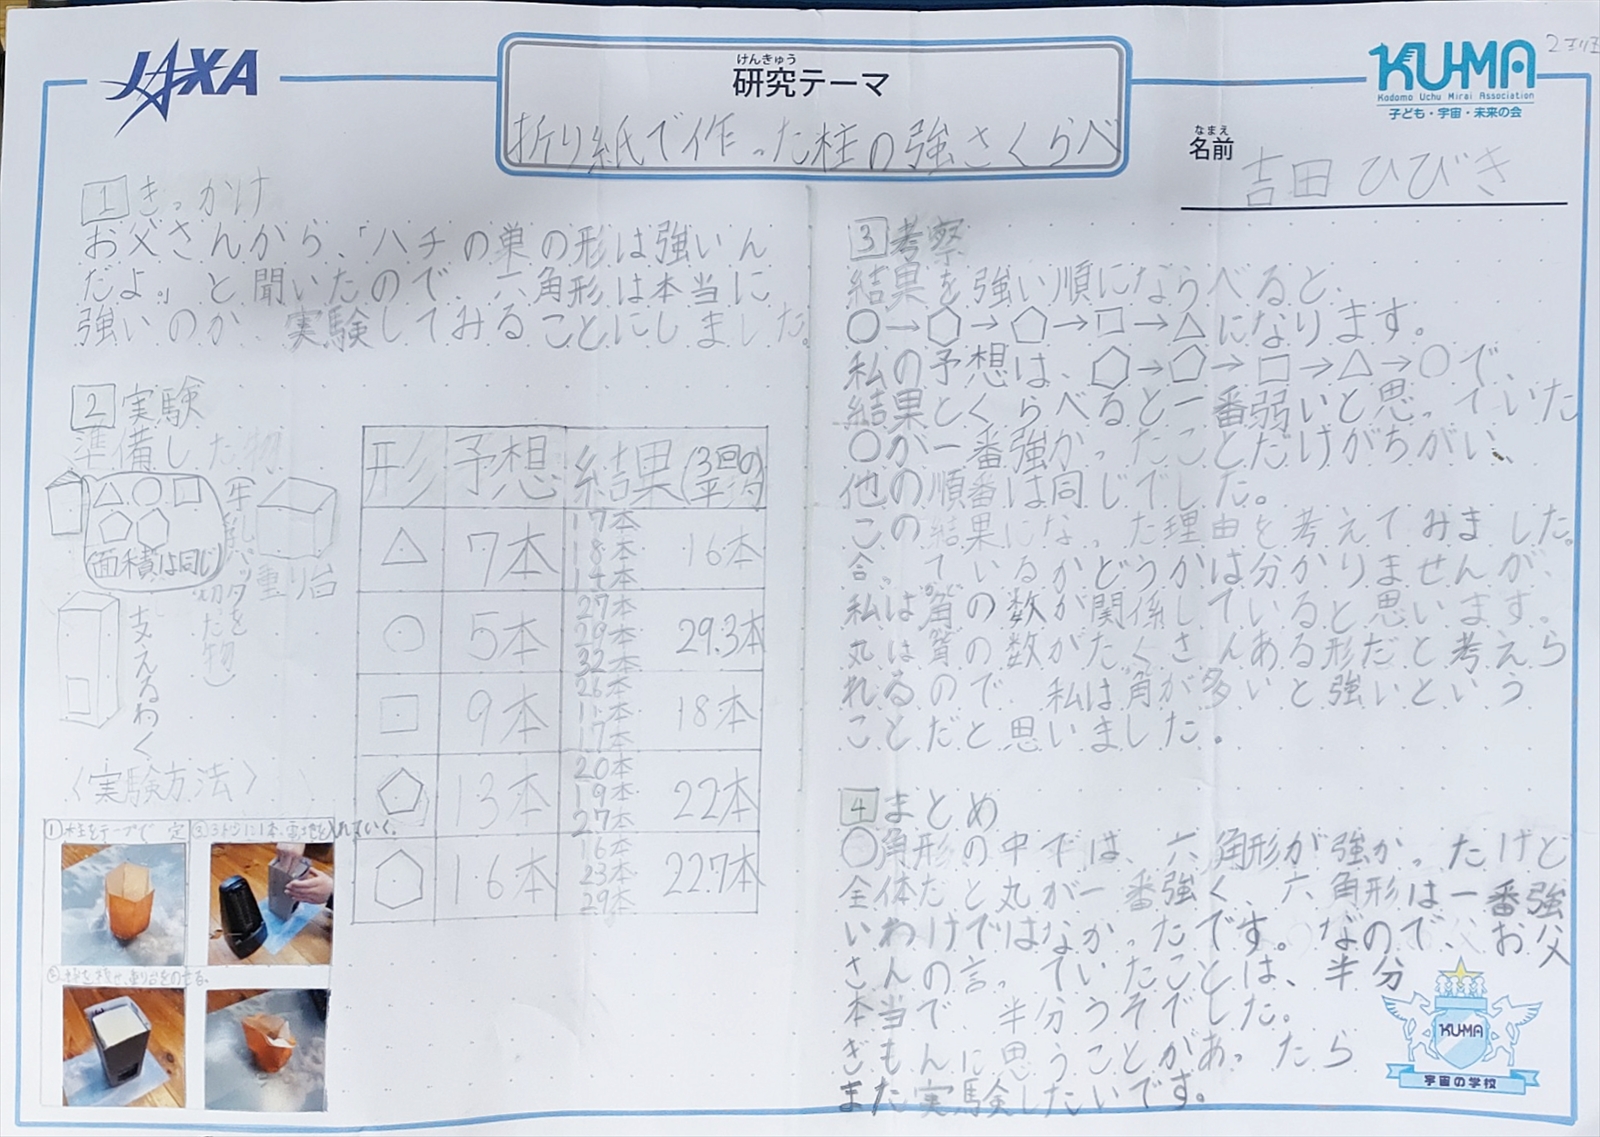 JAXA
けんきゅう
研究テーマ
折り紙で作った柱の強さくらべ
KUMA
Kodomo Uchu Mirai Association
子ども・宇宙・未来の会
なまえ
名前
吉田 ひびき
1 きっかけ
お父さんから、「ハチの巣の形は強いん
だよ。」と聞いたので、六角形は本当に
強いのか、実験してみることにしました。
2 実験
準備した物
(面積は同じ)
(牛乳パックを
切った物)
重り台
支えるわく
形 予想 結果(3回の平均)
△ 7本 17本 18本 16本
○ 5本 27本 29本 32本 29.3本
□ 9本 26本 11本 17本 18本
⬠ 13本 20本 19本 27本 22本
⬡ 16本 16本 23本 29本 22.7本
〈実験方法〉
①柱をテープで
③ 入れていく。
3 考察
結果を強い順にならべると、
○→⬡→⬠→□→△になります。
私の予想は、⬡→⬠→□→△→○で、
結果とくらべると一番弱いと思っていた
○が一番強かったことだけがちがい、
他の順番は同じでした。
この結果になった理由を考えてみました。
合っているかどうかは分かりませんが、
私は角の数が関係していると思います。
丸は角の数がたくさんある形だと考えら
れるので、私は角が多いと強いという
ことだと思いました。
4 まとめ
○角形の中では、六角形が強かったけど
全体だと丸が一番強く、六角形は一番強
いわけではなかったです。なので、お父
さんの言っていたことは、半分
本当で、半分うそでした。
ぎもんに思うことがあったら
また実験したいです。
KUMA
宇宙の学校